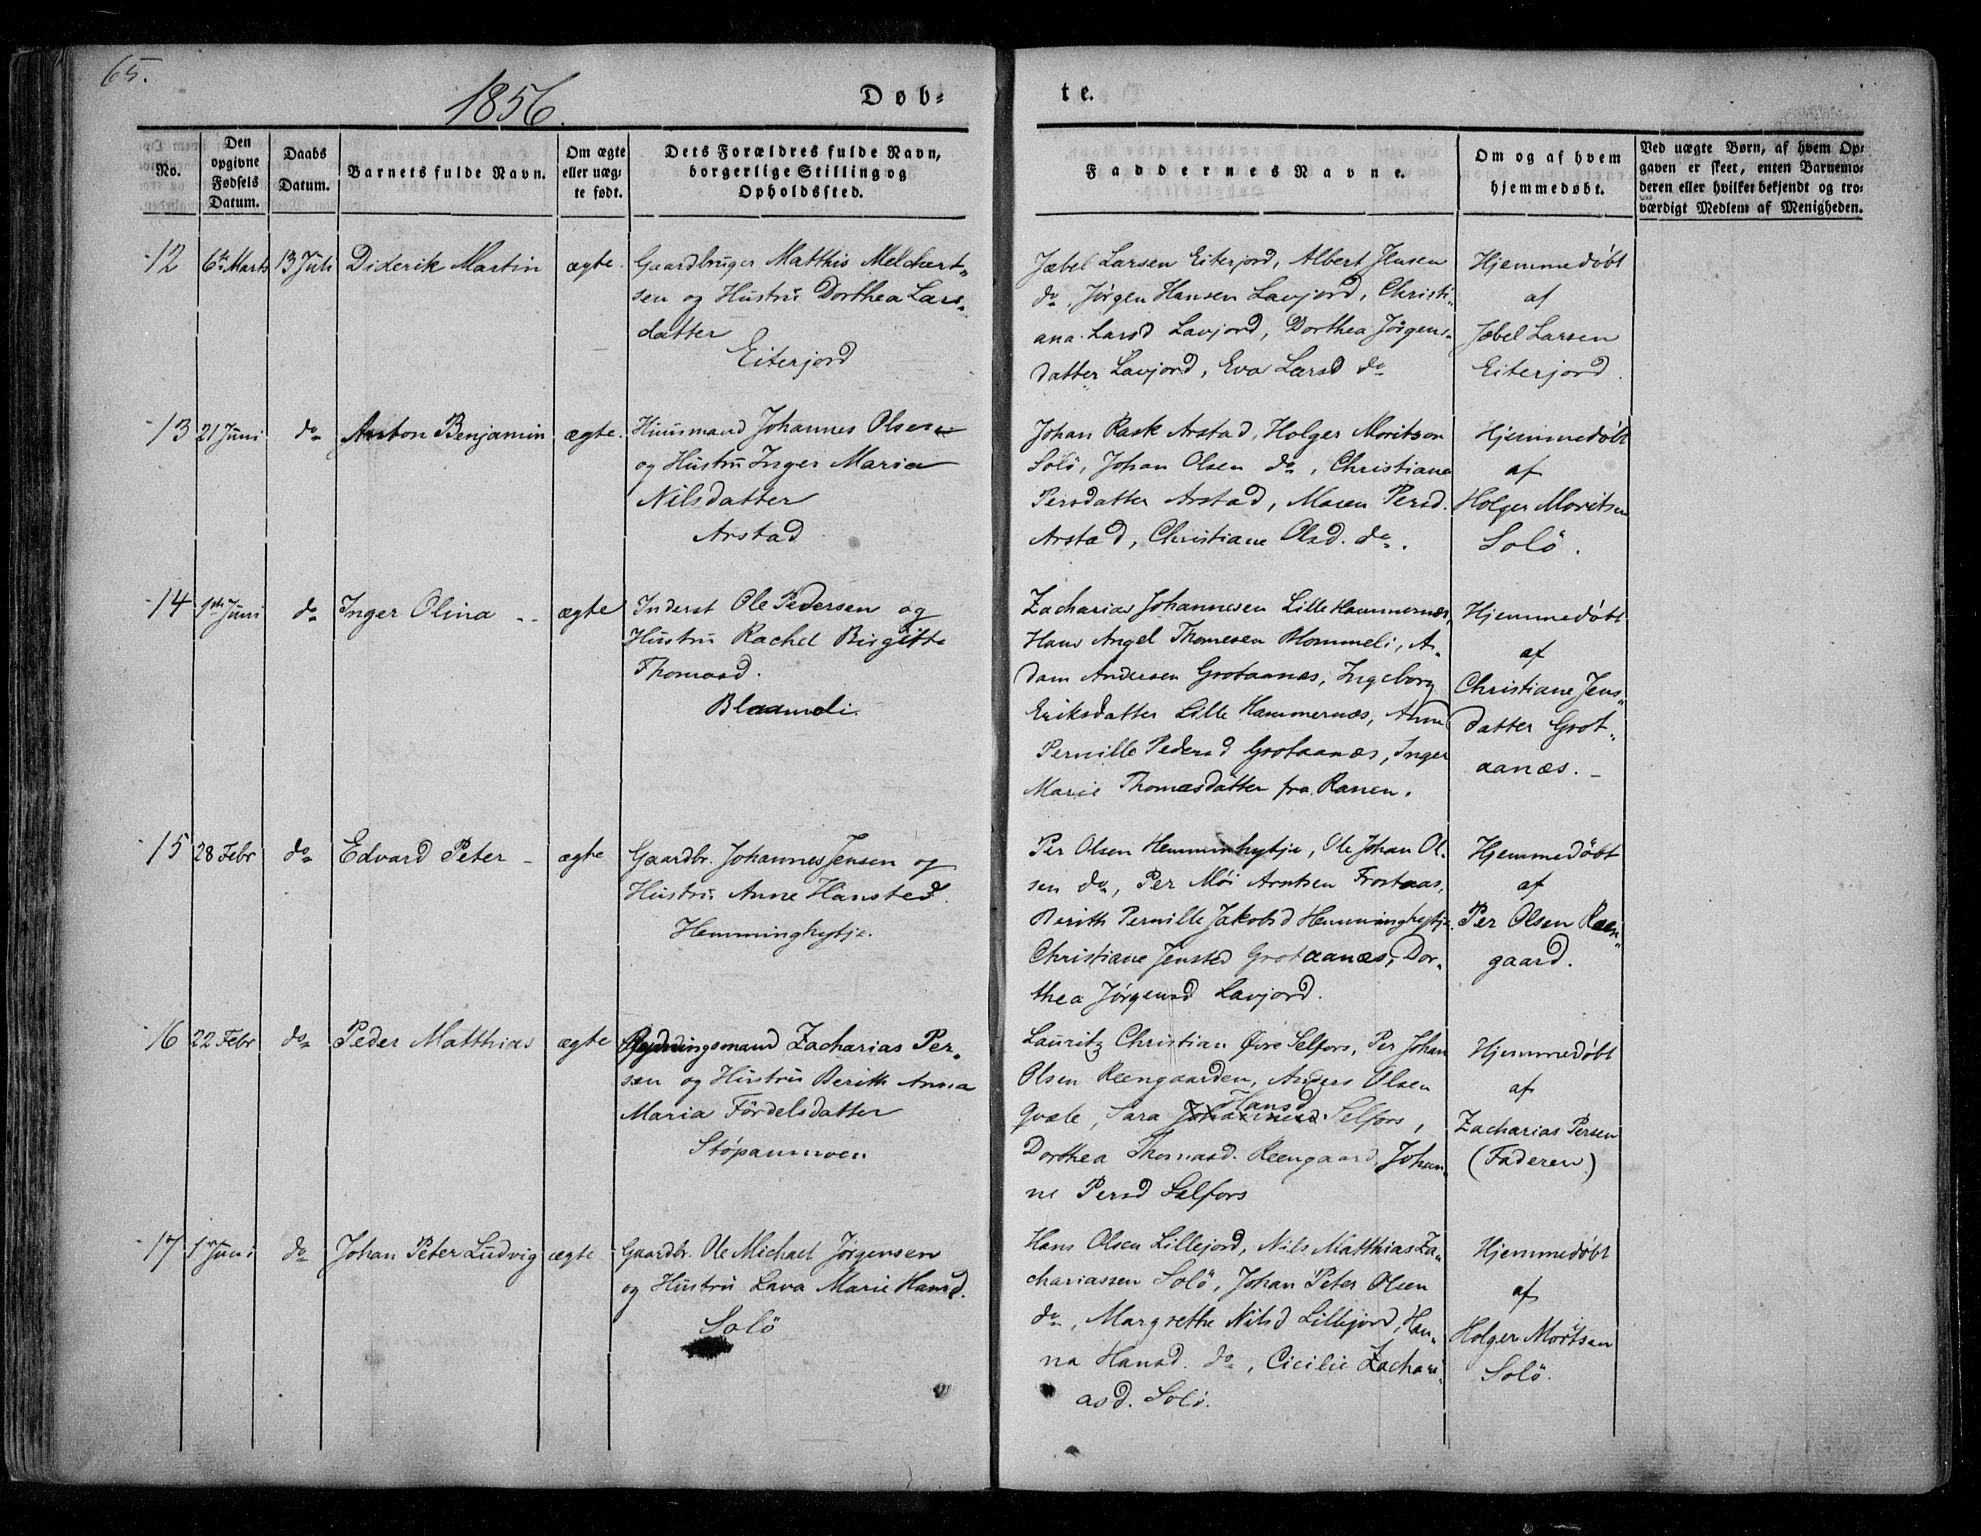 65.
1856.
Døb-
te.
No.
Den
opgivne
Fødsels
Datum.
Daabs
Datum.
Barnets fulde Navn.
Om ægte
eller uæg-
te født.
Dets Forældres fulde Navn,
borgerlige Stilling og
Opholdssted.
Faddernes Navne.
Om og af hvem
hjemmedøbt.
Ved uægte Børn, af hvem Op-
gaven er skeet, enten Barnemo-
deren eller hvilket bekjendt og tro-
værdigt Medlem af Menigheden.
12
6te Marts
13 Juli
Diderik Martin
ægte.
Gaardbruger Matthis Melchert-
sen og Hustru Dorthea Lars-
datter
Eiterjord
Jæbel Larsen Eiterjord, Albert Jensen
do, Jørgen Hansen Lavjord, Christi-
ana Larsd Lavjord, Dorthea Jørgens-
datter Lavjord, Eva Larsd do
Hjemmedøbt
af
Jæbel Larsen
Eiterjord.
13
21 Juni
do
Anton Benjamin
ægte.
Huusmand Johannes Olsen
og Hustru Inger Maria
Nilsdatter
Arstad
Johan Rask Arstad, Holger Moritsen
Solö, Johan Olsen do, Christiane
Persdatter Arstad, Maren Persd.
Arstad, Christiane Olsd. do.
Hjemmedøbt
af
Holger Moritsen
Solö.
14
1ste Juni
do
Inger Olina
ægte
Inderst Ole Pedersen og
Hustru Rachel Birgitte
Thomasd.
Blaameli.
Zacharias Johannesen Lille Hammernæs,
Hans Angel Thomesen Blommeli, A-
dam Andersen Grotaanæs, Ingeborg
Eriksdatter Lille Hammernæs, Anne
Pernille Pedersd Grotaanæs, Inger
Marie Thomasdatter fra Ranen.
Hjemmedøbt
af
Christiane Jens-
datter Grot-
aanæs. -
15
28 Febr
do
Edvard Peter -
ægte
Gaardbr. Johannes Jensen og
Hustru Anne Hansted.
Hemminghytje.
Per Olsen Hemminhytje, Ole Johan Ol-
sen do, Per Möi Arntsen Frostaas,
Berith Pernille Jakobsd Hemminghytje.
Christiane Jensted Grotaanæs, Dor-
thea Jørgensd Lavjord.
Hjemmedøbt
af
Per Olsen Reen-
gaard.
16
22 Febr
do
Peder Matthias
ægte
Rydningsmand Zacharias Per-
sen og Hustru Berith Anna
Maria Fördelsdatter
Støpanmoen
Lauritz Christian Øvre Selfors, Per Johan
Olsen Reengaarden, Anders Olsen
Qvale, Sara Johannesd Hansd Selfors,
Dorthea Thomasd. Reengaard, Johan-
ne Persd Selfors
Hjemmedøbt
af
Zacharias Persen
(Faderen)
17
1 Juni
do
Johan Peter Ludvig
ægte
Gaardbr. Ole Michael Jørgensen
og Hustru Lava Marie Hansd.
Solö
Hans Olsen Lillejord, Nils Matthias Za-
chariassen Solö, Johan Peter Olsen
do, Margrethe Nilsd Lillejord, Han-
na Hansd. do, Cicilie Zachari-
asd. Solö.
Hjemmedøbt
af
Holger Mortsen
Solö.